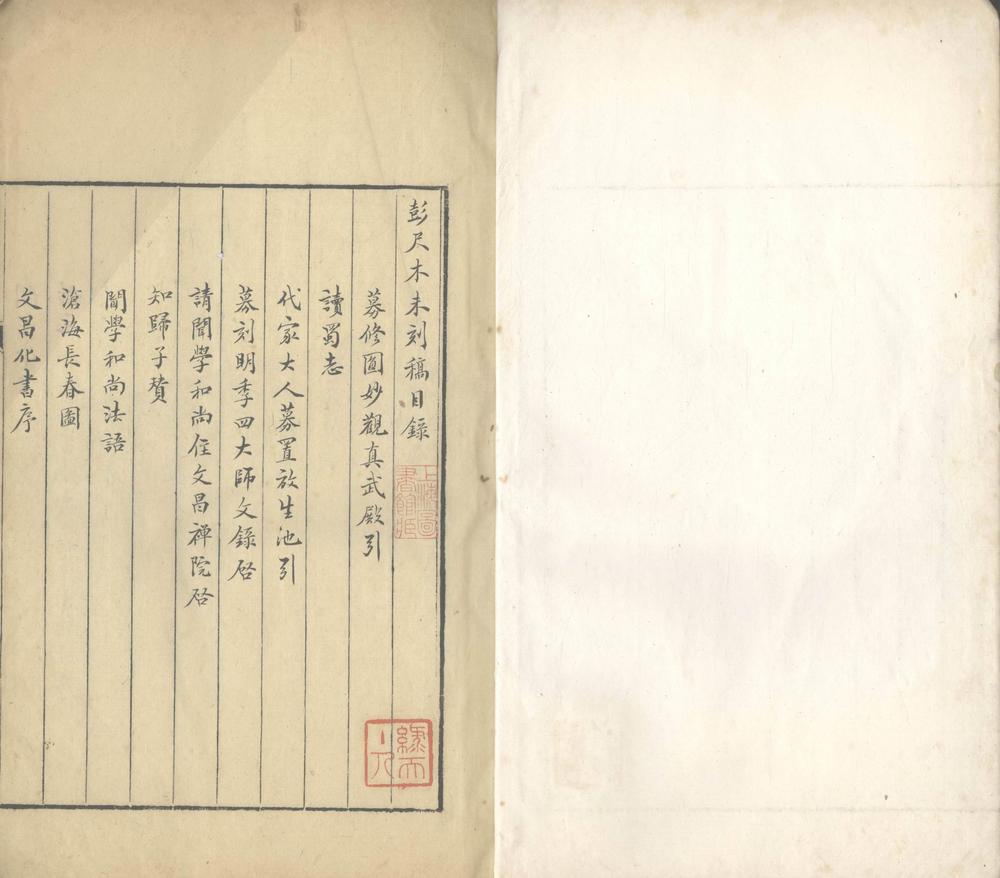 彭尺木未刻稿目錄
募修圓妙觀真武殿引
讀蜀志
代家大人募置放生池引
募刻明季四大師文錄啓
請聞學和尚住文昌禪院啓
知歸子贊
聞學和尚法語
滄海長春圖
文昌化書序
上海圖書館藏